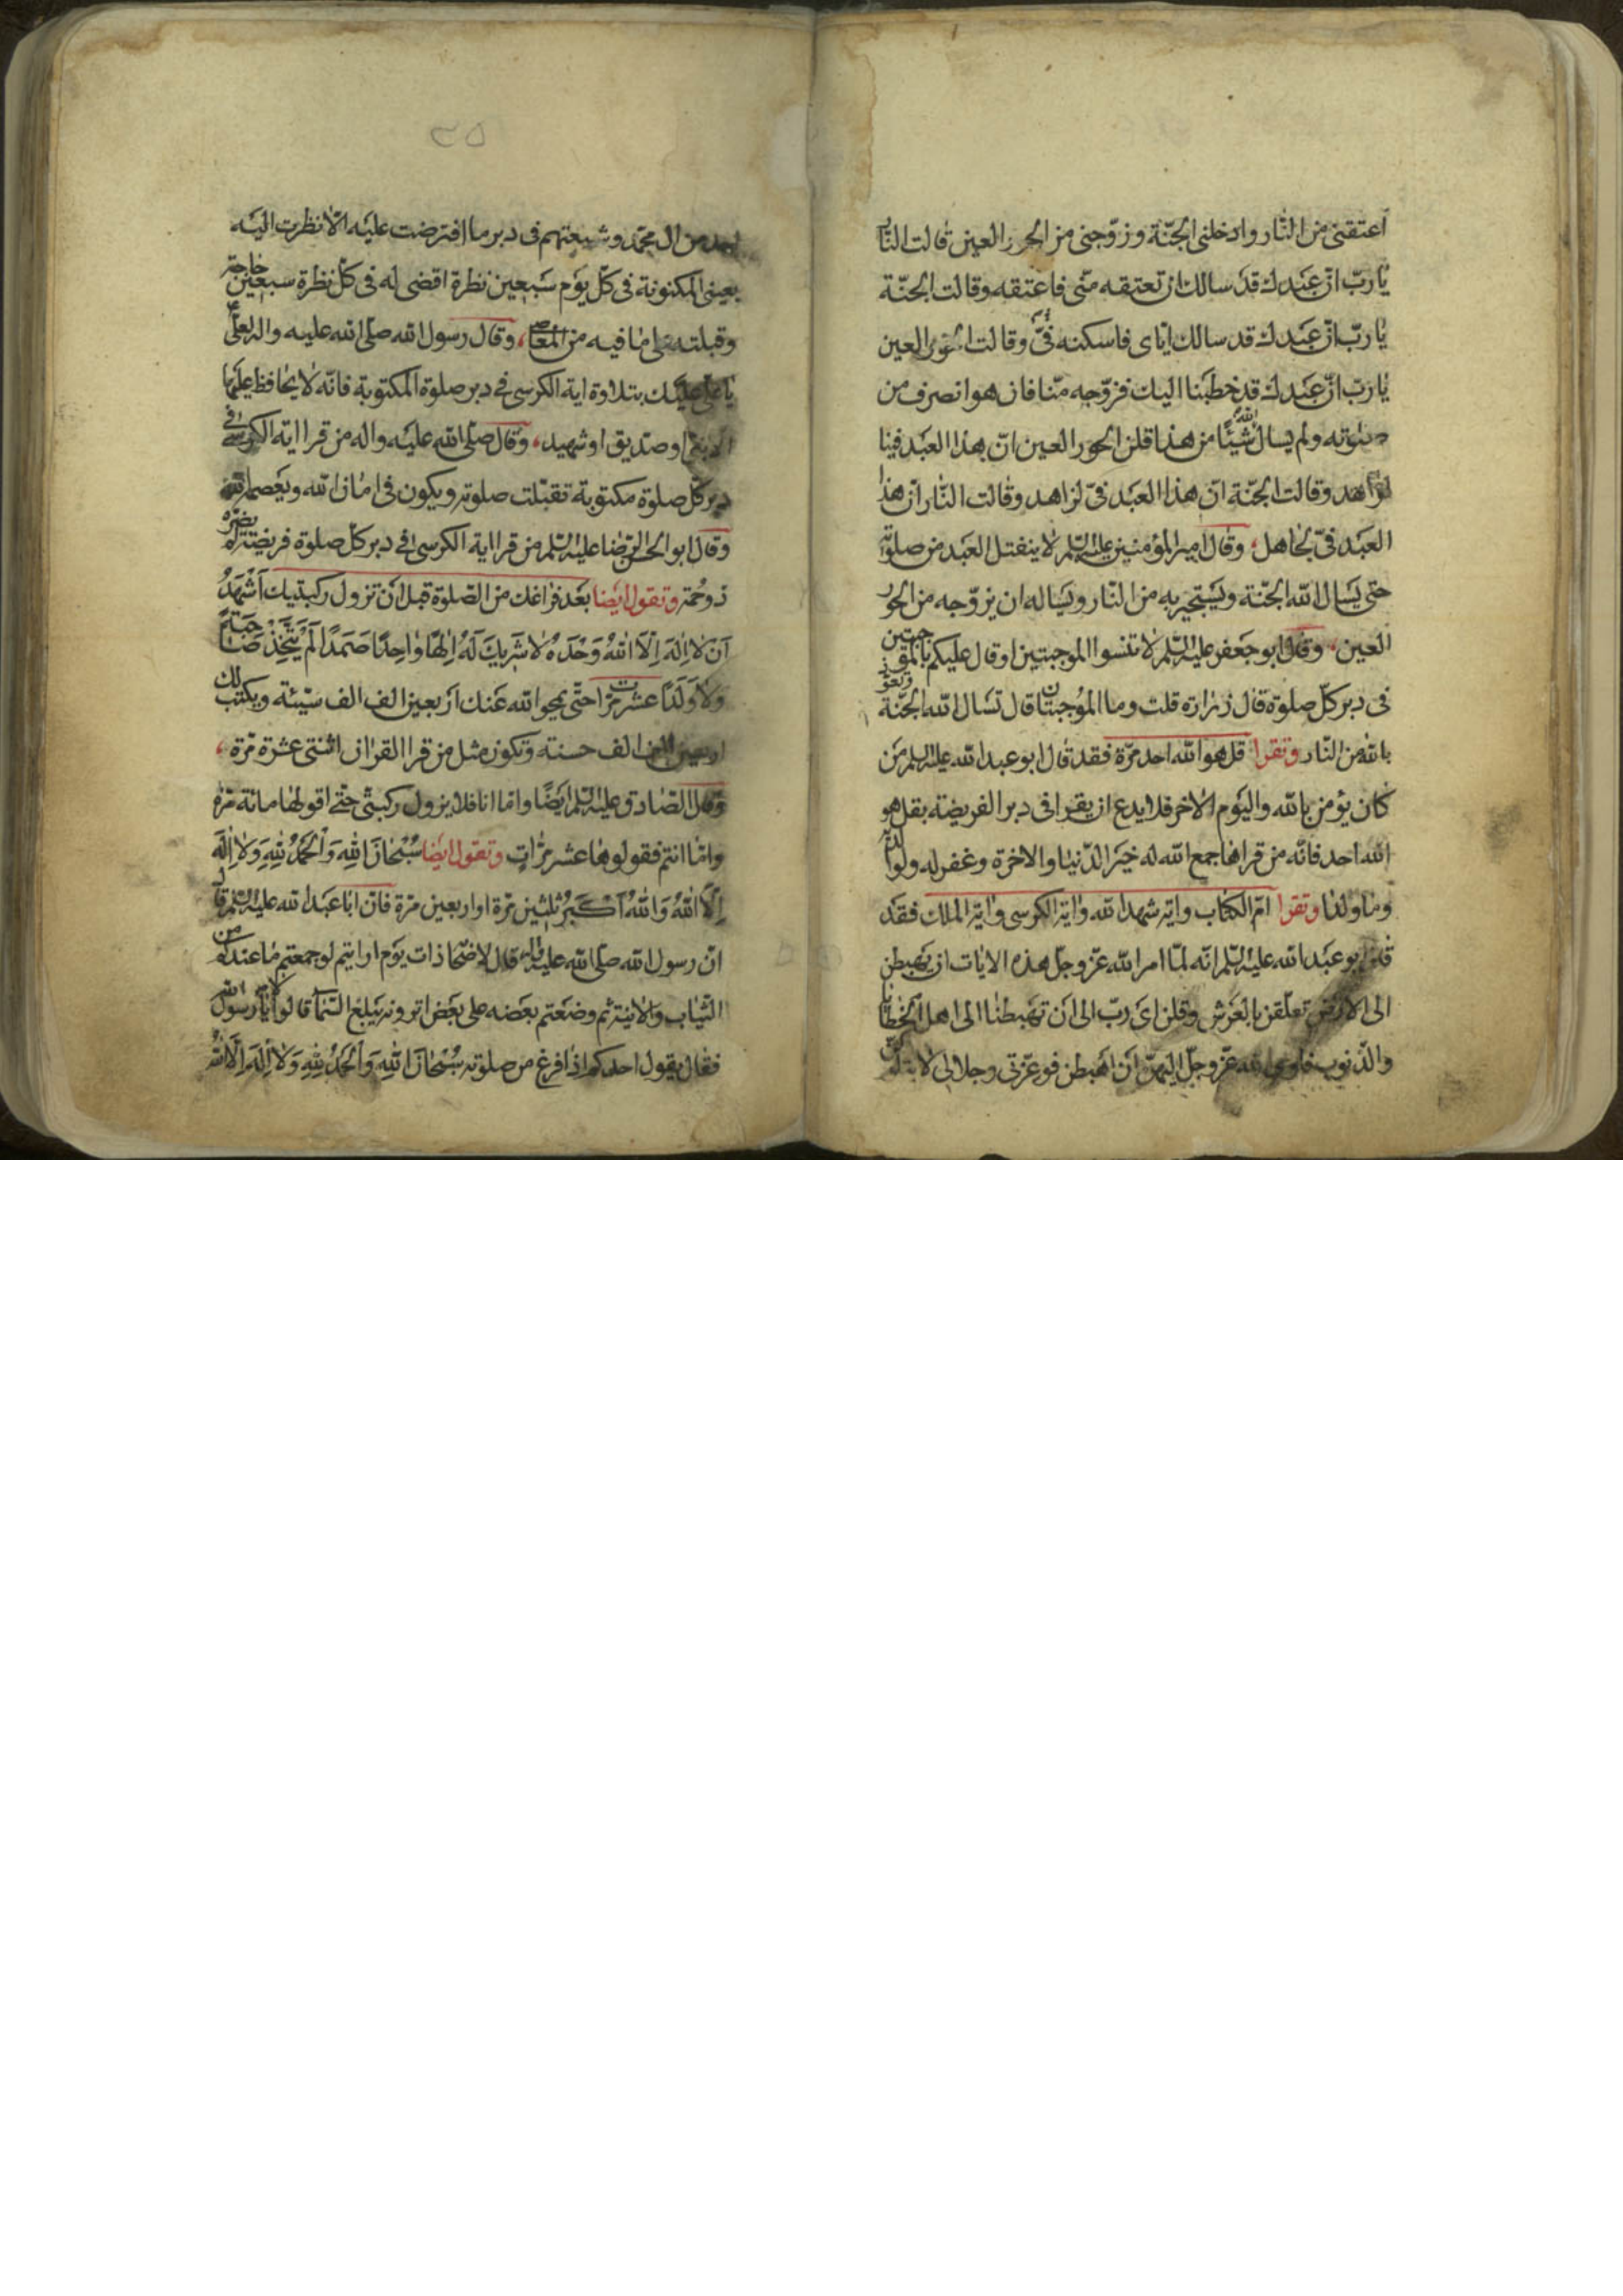 اعتقنى من النار وادخلنى الجنّة وزوّجنى من الحور العين قالت النّار
يا ربّ انّ عبدك قد سالك ان تعتقه منّى فاعتقه وقالت الجنّة
يا ربّ انّ عبدك قد سالك اياى فاسكنه فىّ وقالت الحور العين
يا ربّ انّ عبدك قد خطبنا اليك فزوّجه منّا فان هو انصرف من
صلوته ولم يسال الله شيئًا من هذا قلن الحور العين انّ هذا العبد فينا
لزاهد وقالت الجنّة انّ هذا العبد فىّ لزاهد وقالت النّار انّ هذا
العبد فىّ لجاهل، وقال امير المؤمنين عليه السّلم لا ينفتل العبد من صلوته
حتى يسال الله الجنّة ويستجير به من النّار ويساله ان يزوّجه من الحور
العين، وقال ابو جعفر عليه السّلم لا تنسوا الموجبتين او قال عليكم بالموجبتين
فى دبر كلّ صلوة قال زرارة قلت وما الموجبتان قال تسال الله الجنّة وتعوذ
بالله من النّار وتقرا قل هو الله احد مرّة فقد قال ابو عبد الله عليه السّلم من
كان يؤمن بالله واليوم الاخر فلا يدع ان يقرا فى دبر الفريضة بقل هو
الله احد فانّه من قراها جمع الله له خير الدّنيا والاخرة وغفر له ولوالديه
وما ولدا وتقرا امّ الكتاب واية شهد الله واية الكرسى واية الملك فقد
قال ابو عبد الله عليه السّلم انّه لمّا امر الله عزّ وجلّ هذه الايات ان يهبطن
الى الارض تعلّقن بالعرش وقلن اى ربّ الى اين تهبطنا الى اهل الخطايا
والذنوب فاوحى الله عزّ وجلّ اليهنّ ان اهبطن فوعزّتى وجلالى لا يتلوكنّ
٣٥
احد من ال محمّد وشيعتهم فى دبر ما افترضت عليه الّا نظرت اليه
بعينى المكنونة فى كلّ يوم سبعين نظرة اقضى له فى كلّ نظرة سبعين حاجة
وقبلته على ما فيه من المعاصى، وقال رسول الله صلّى الله عليه واله لعلىّ ع
يا على عليك بتلاوة اية الكرسى فى دبر صلوة المكتوبة فانّه لا يحافظ عليها
الّا نبىّ او صدّيق او شهيد، وقال صلّى الله عليه واله من قرا اية الكرسى فى
دبر كلّ صلوة مكتوبة تقبّلت صلوته ويكون فى امان الله ويعصمه الله
وقال ابو الحسن الرّضا عليه السّلم من قرا اية الكرسى فى دبر كلّ صلوة فريضة لم يضرّه
ذو حُمَة وتقول ايضا بعد فراغك من الصّلوة قبل ان تزول ركبتيك اَشْهَدُ
اَنْ لا اِلهَ اِلّا اللهُ وَحْدَهُ لا شَرِيكَ لَهُ اِلهًا واحِدًا صَمَدًا لَمْ يَتَّخِذْ صاحِبَةً
وَلا وَلَدًا عشر مرّات حتّى يمحو الله عنك اربعين الف الف سيّئة ويكتب لك
اربعين الف الف حسنة وتكون مثل من قرا القران اثنتى عشرة مرّة،
وقال الصّادق عليه السّلم ايضًا وامّا انا فلا يزول ركبتى حتّى اقولها مائة مرّة
وامّا انتم فقولوها عشر مرّات وتقول ايضا سُبْحانَ اللهِ وَالْحَمْدُ لِلّهِ وَلا اِلهَ
اِلّا اللهُ وَاللهُ اَكْبَرُ ثلثين مرّة او اربعين مرّة فانّ ابا عبد الله عليه السّلم قال
انّ رسول الله صلّى الله عليه واله قال لاصحابه ذات يوم ارايتم لو جمعتم ما عندكم من
الثّياب والانية ثم وضعتم بعضه على بعض اترونه يبلغ السّماء قالوا لا يا رسول الله
فقال يقول احدكم اذا فرغ من صلوته سُبْحانَ اللهِ وَالْحَمْدُ لِلّهِ وَلا اِلهَ اِلّا اللهُ